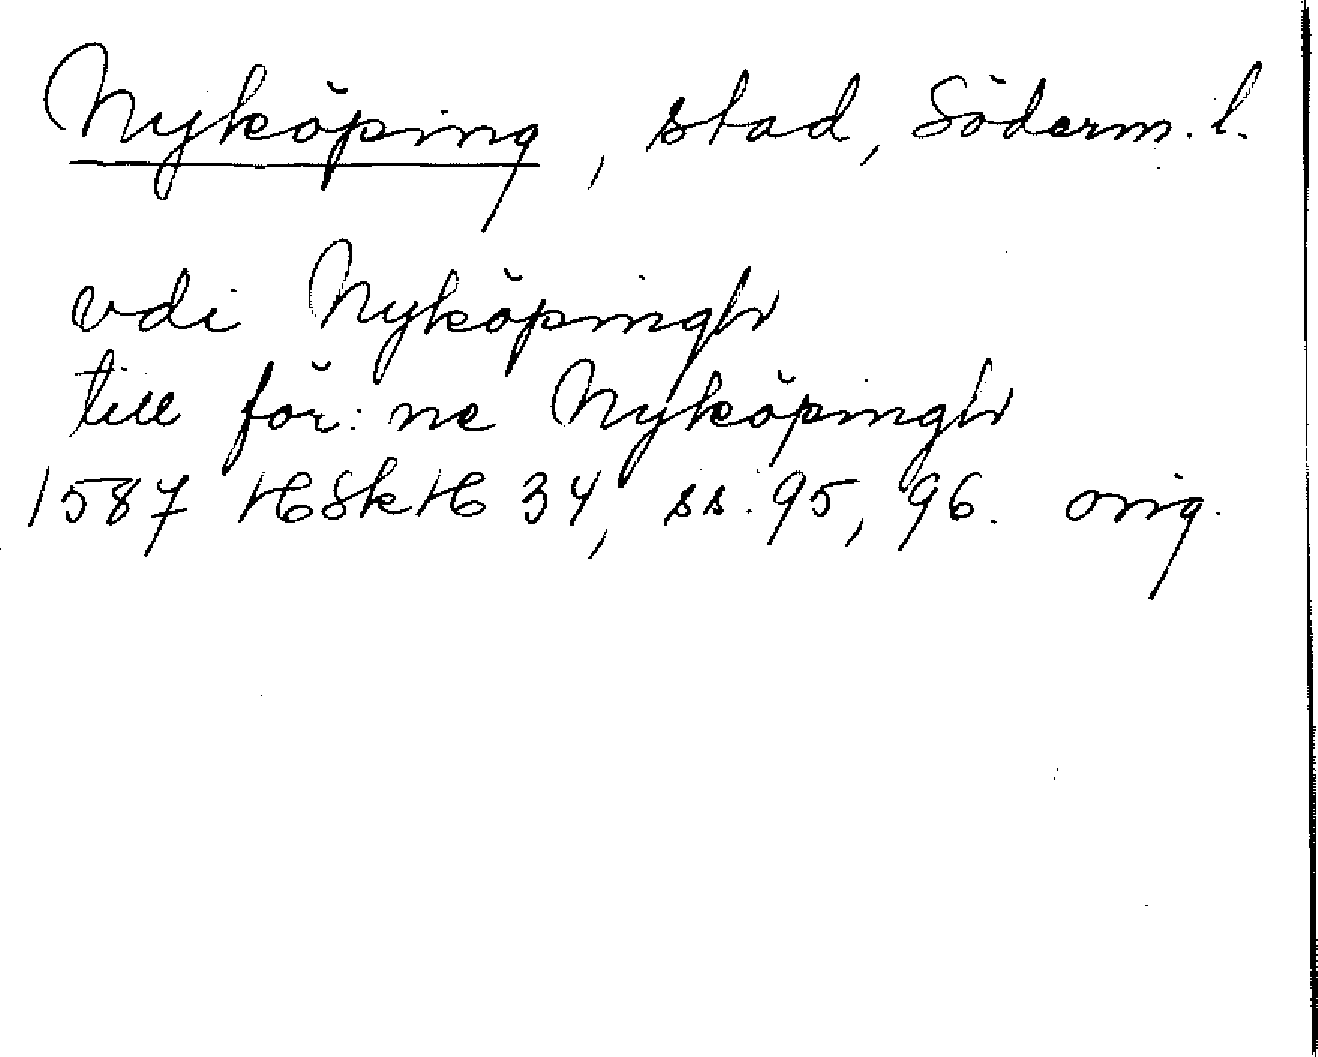 Nyköping, stad, Söderm. l.
vdi Nyköpingh
till för: ne Nyköpingh
1587 HSkH 34, ss. 95, 96. orig.